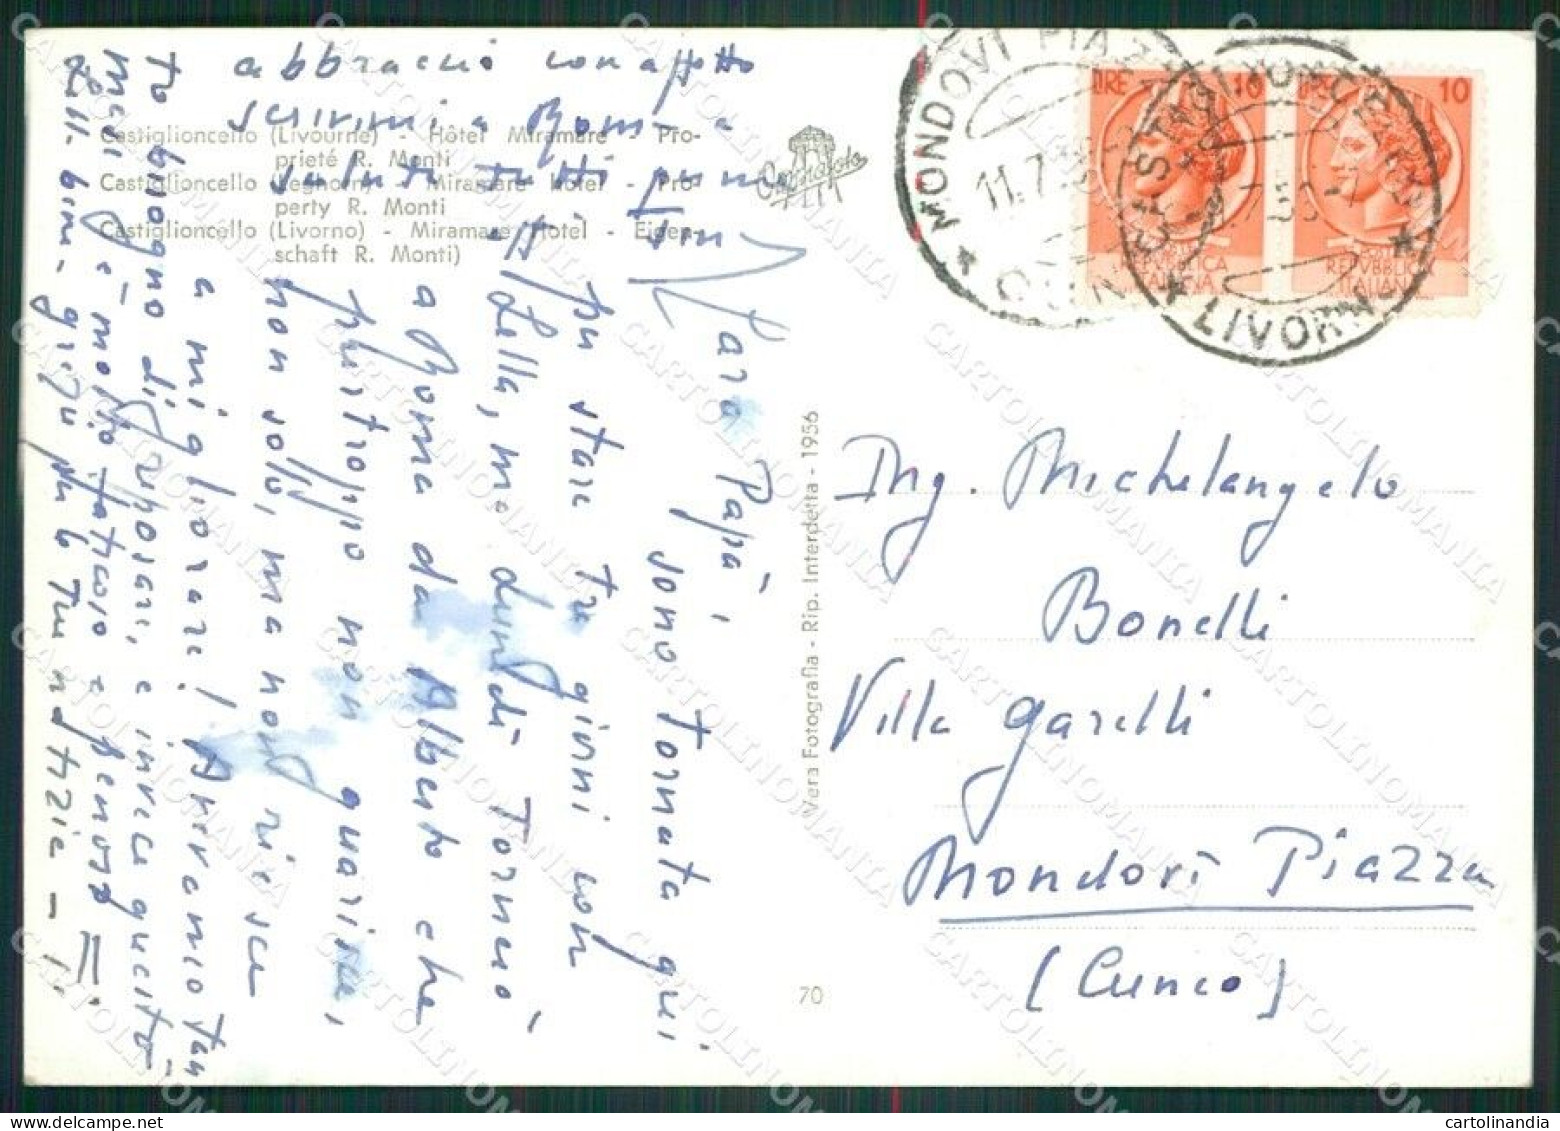 Castiglioncello (Livourne) - Hôtel Miramare - Pro-
prieté R. Monti
Castiglioncello (Leghorn) - Miramare Hotel - Pro-
perty R. Monti
Castiglioncello (Livorno) - Miramare Hotel - Eigen-
schaft R. Monti)
Cara Papà,
sono tornata qui
per stare tre giorni con
Lella, ma lunedì tornerò
a Roma da Alberto che
purtroppo non guarisce,
non solo, ma non riesce
a migliorare! Avevamo tan
to bisogno di riposare, e invece questo
mese è molto faticoso e penoso
grazie per le tue notizie -
abbraccio con affetto
scrivimi a Roma e
saluti tutti
MONDOVI PIAZZA
11.7.56
CUNEO
CASTAGLIONCELLO
LIVORNO
LIRE 10
10
REPVBBLICA
ITALIANA
REPVBBLICA
ITALIANA
Vera Fotografia - Rip. Interdetta - 1956
70
Ing. Michelangelo
Bonelli
Villa Garelli
Mondovì Piazza
(Cuneo)
CARTOLINOMANIA
cartolinandia